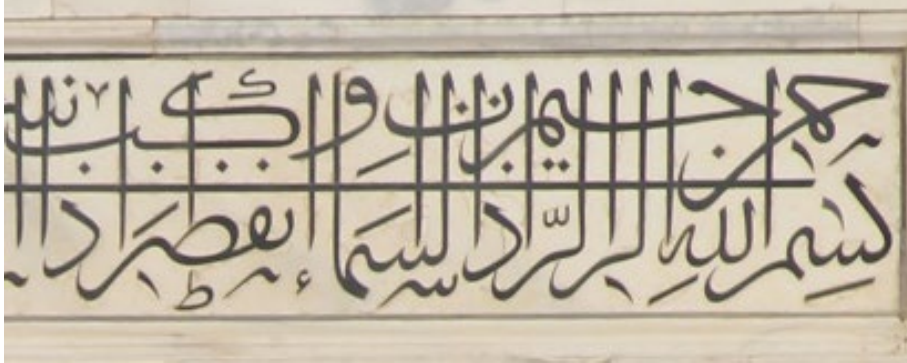 بسم الله الرحمن الرحيم إذا السماء انفطرت وإذا الكواكب